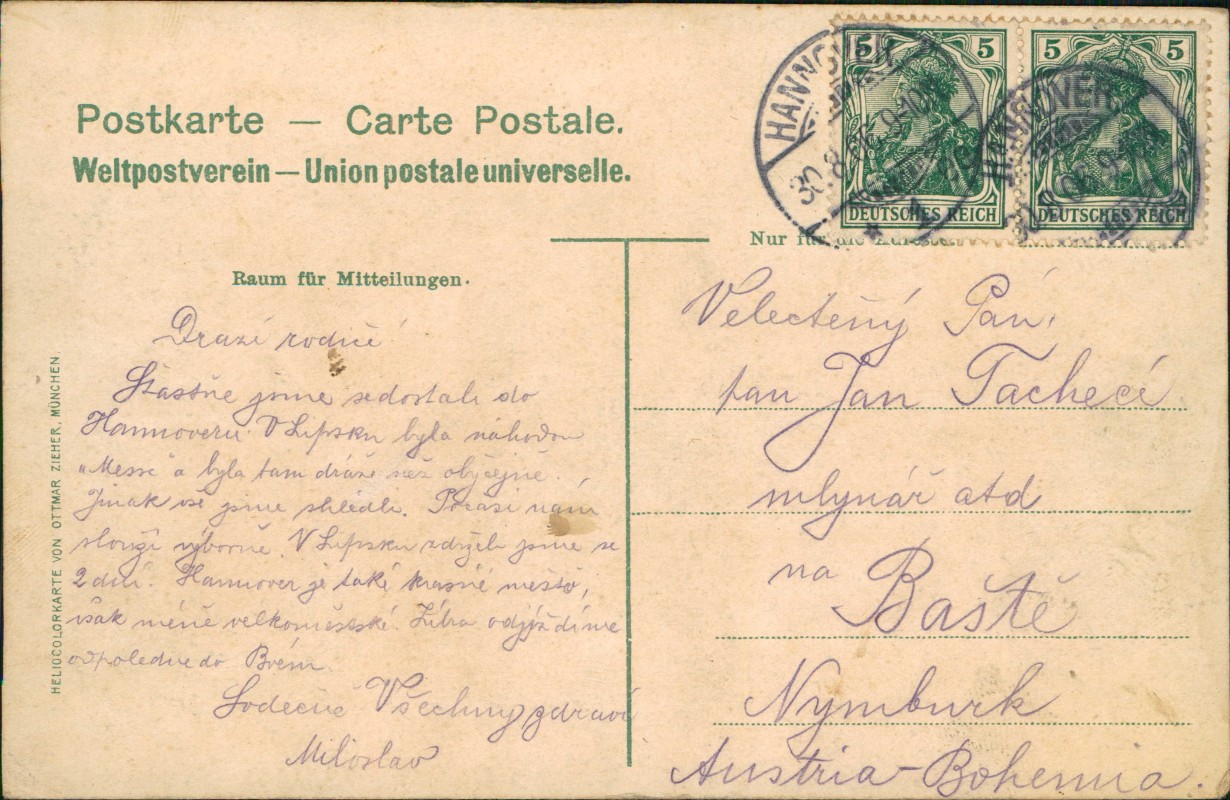 Postkarte — Carte Postale.
Weltpostverein — Union postale universelle.
5 5 5 5
DEUTSCHES REICH DEUTSCHES REICH
HANNOVER
30.8.06. 9-10
* 1
HANNOVER
Nur für die Adresse.
Raum für Mitteilungen.
Drazí rodiče!
Štastně jsme se dostali do
Hannoveru. V Lipsku byla náhodou
„Messe" a byla tam dráže než obyčejně.
Jinak vše jsme shlédli. Počasí nám
slouží výborně. V Lipsku zdrželi jsme se
2 dni. Hannover je také krasné město,
však méně velkoměstské. Zítra odjíždíme
odpoledne do Brém.
Srdečně Všechny zdraví
Miloslav
Velectěný Pán,
pan Jan Tachecí
mlynář atd
na Baště
Nymburk
Austria-Bohemia.
HELIOCOLORKARTE VON OTTMAR ZIEHER, MÜNCHEN.